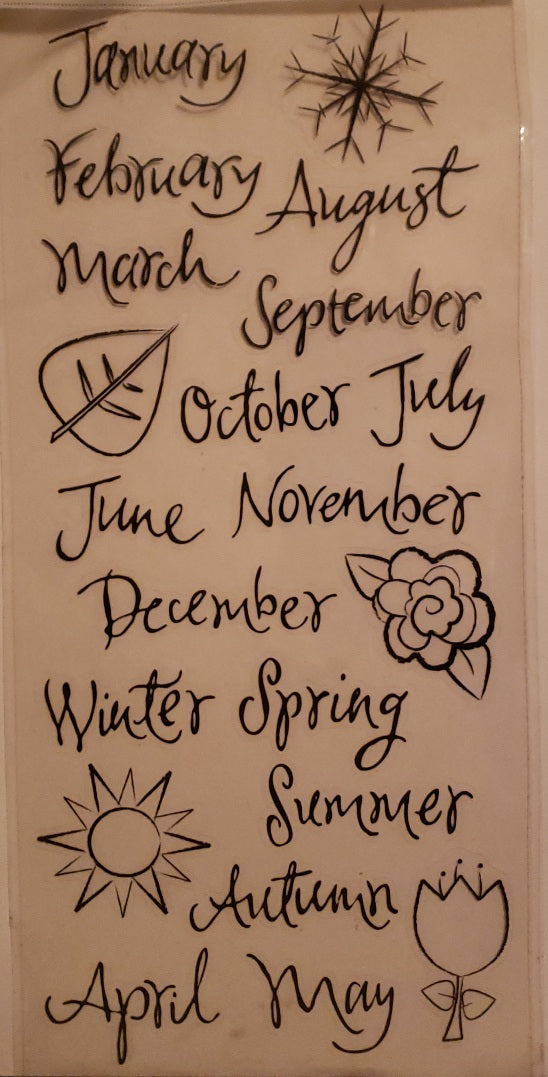 January
February August
March
September
October July
June November
December
Winter Spring
Summer
Autumn
April May